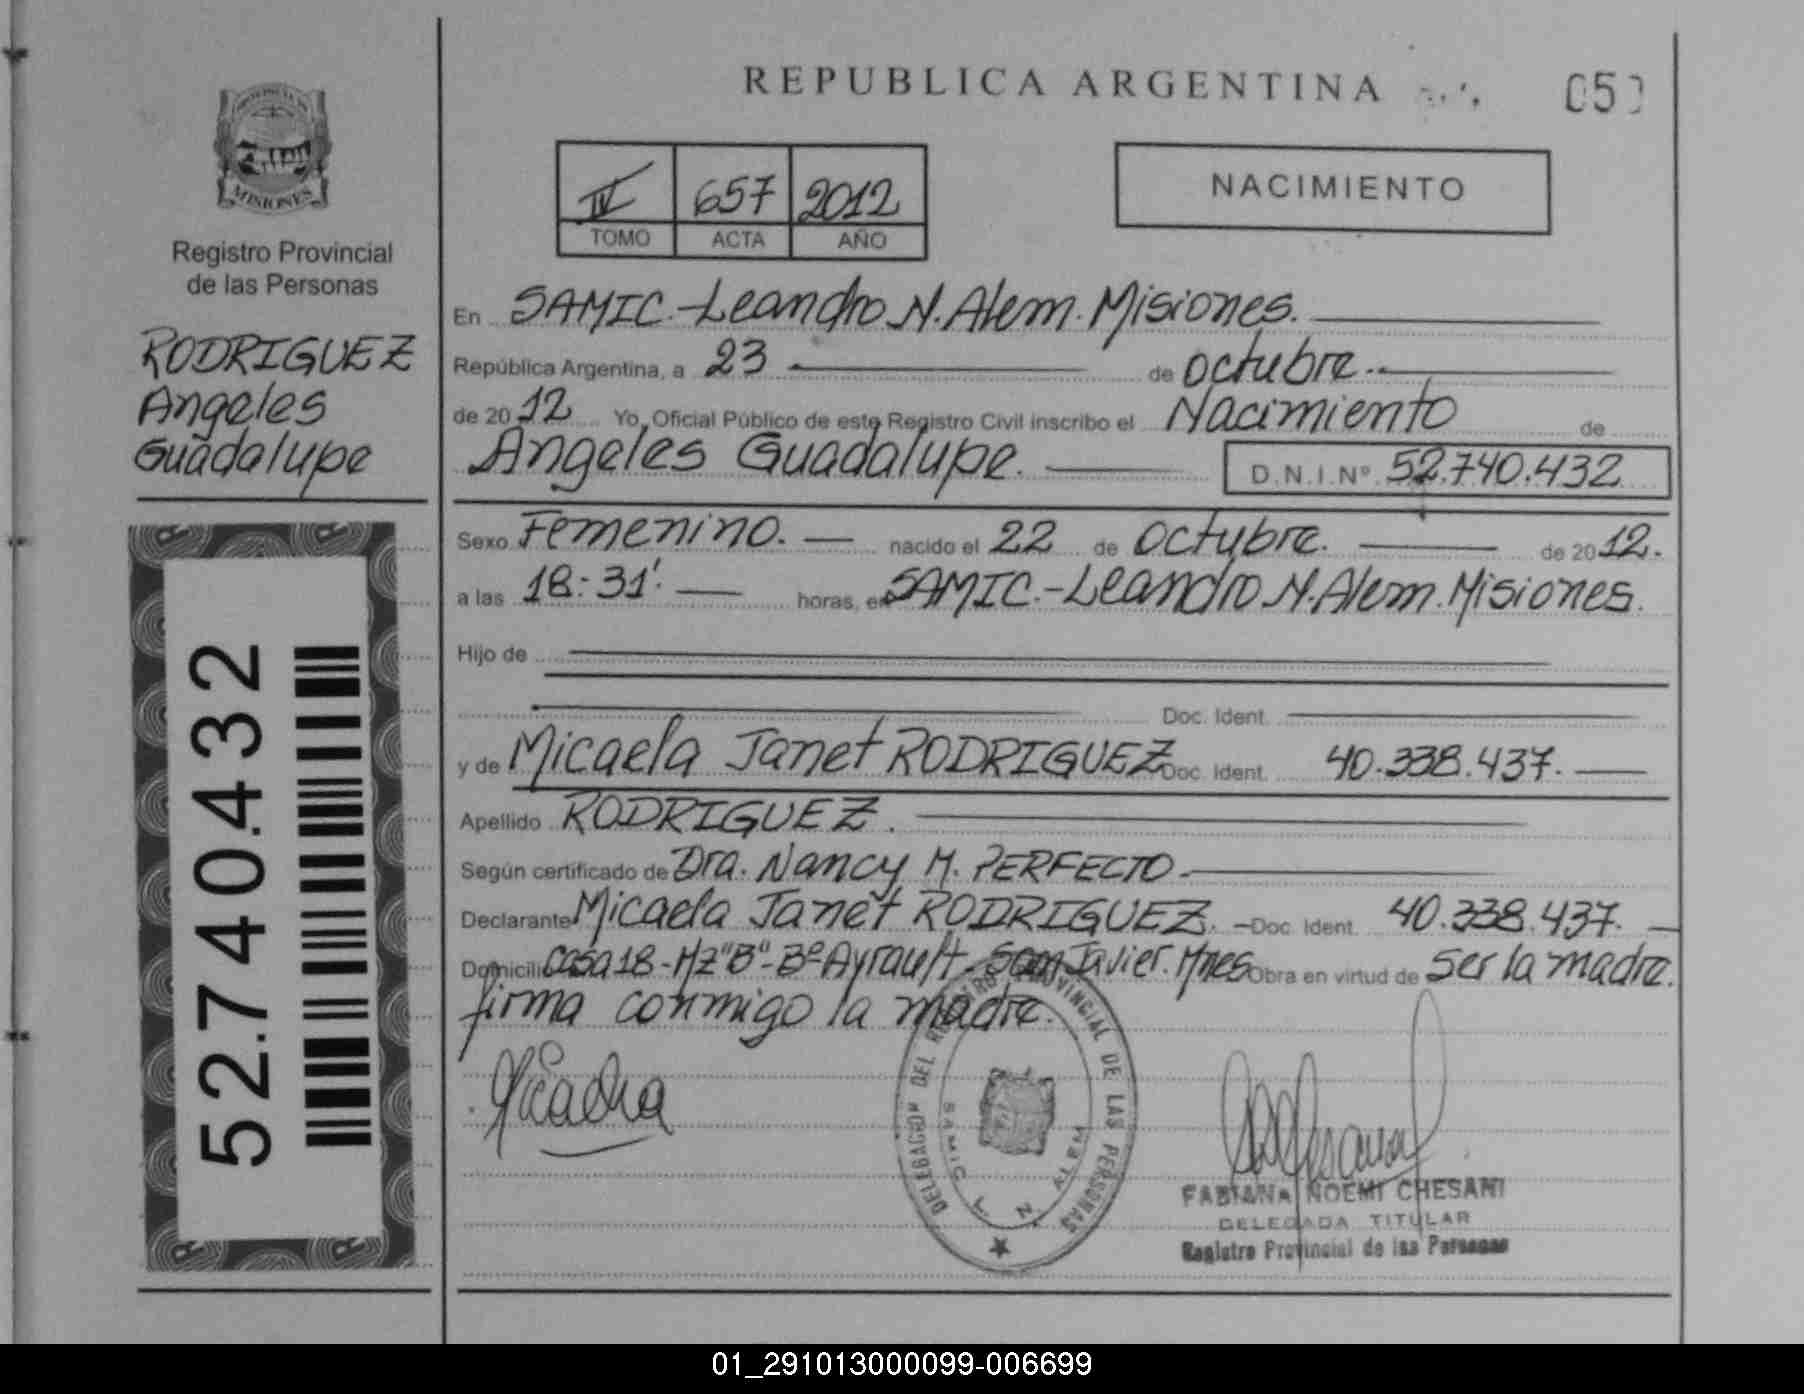 REPUBLICA ARGENTINA
05
PROVINCIA DE
MISIONES
Registro Provincial
de las Personas
RODRIGUEZ
Angeles
Guadalupe
52.740.432
IV 657 2012
TOMO ACTA AÑO
NACIMIENTO
En SAMIC.-Leandro N. Alem. Misiones.
República Argentina, a 23 de octubre.
de 2012 Yo, Oficial Público de este Registro Civil inscribo el Nacimiento de
Angeles Guadalupe. D.N.I.Nº 52.740.432
Sexo Femenino. nacido el 22 de octubre. de 2012.
a las 18:31'. horas, en SAMIC.-Leandro N. Alem. Misiones.
Hijo de
Doc. Ident.
y de Micaela Janet RODRIGUEZ Doc. Ident. 40.338.437.
Apellido RODRIGUEZ.
Según certificado de Dra. Nancy M. PERFECTO
Declarante Micaela Janet RODRIGUEZ. - Doc. Ident. 40.338.437.
Domicilio Casa 18-Mz"B"-Bº Ayrault. San Javier. Mnes Obra en virtud de Ser la madre.
firma conmigo la madre.
DELEGACION DEL REGISTRO PROVINCIAL DE LAS PERSONAS
SAMIC L. N. ALEM
FABIANA NOEMI CHESANI
DELEGADA TITULAR
Registro Provincial de las Personas
01_291013000099-006699